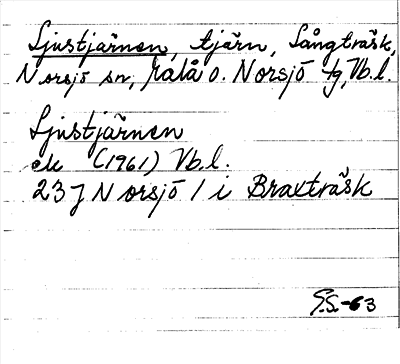 Ljustjärnen, tjärn, Långträsk,
Norsjö sn, Malå o. Norsjö tg, Vb.l.
Ljustjärnen
ek (1961) Vb.l.
23J Norsjö 1 i Braxträsk
S.S.-63